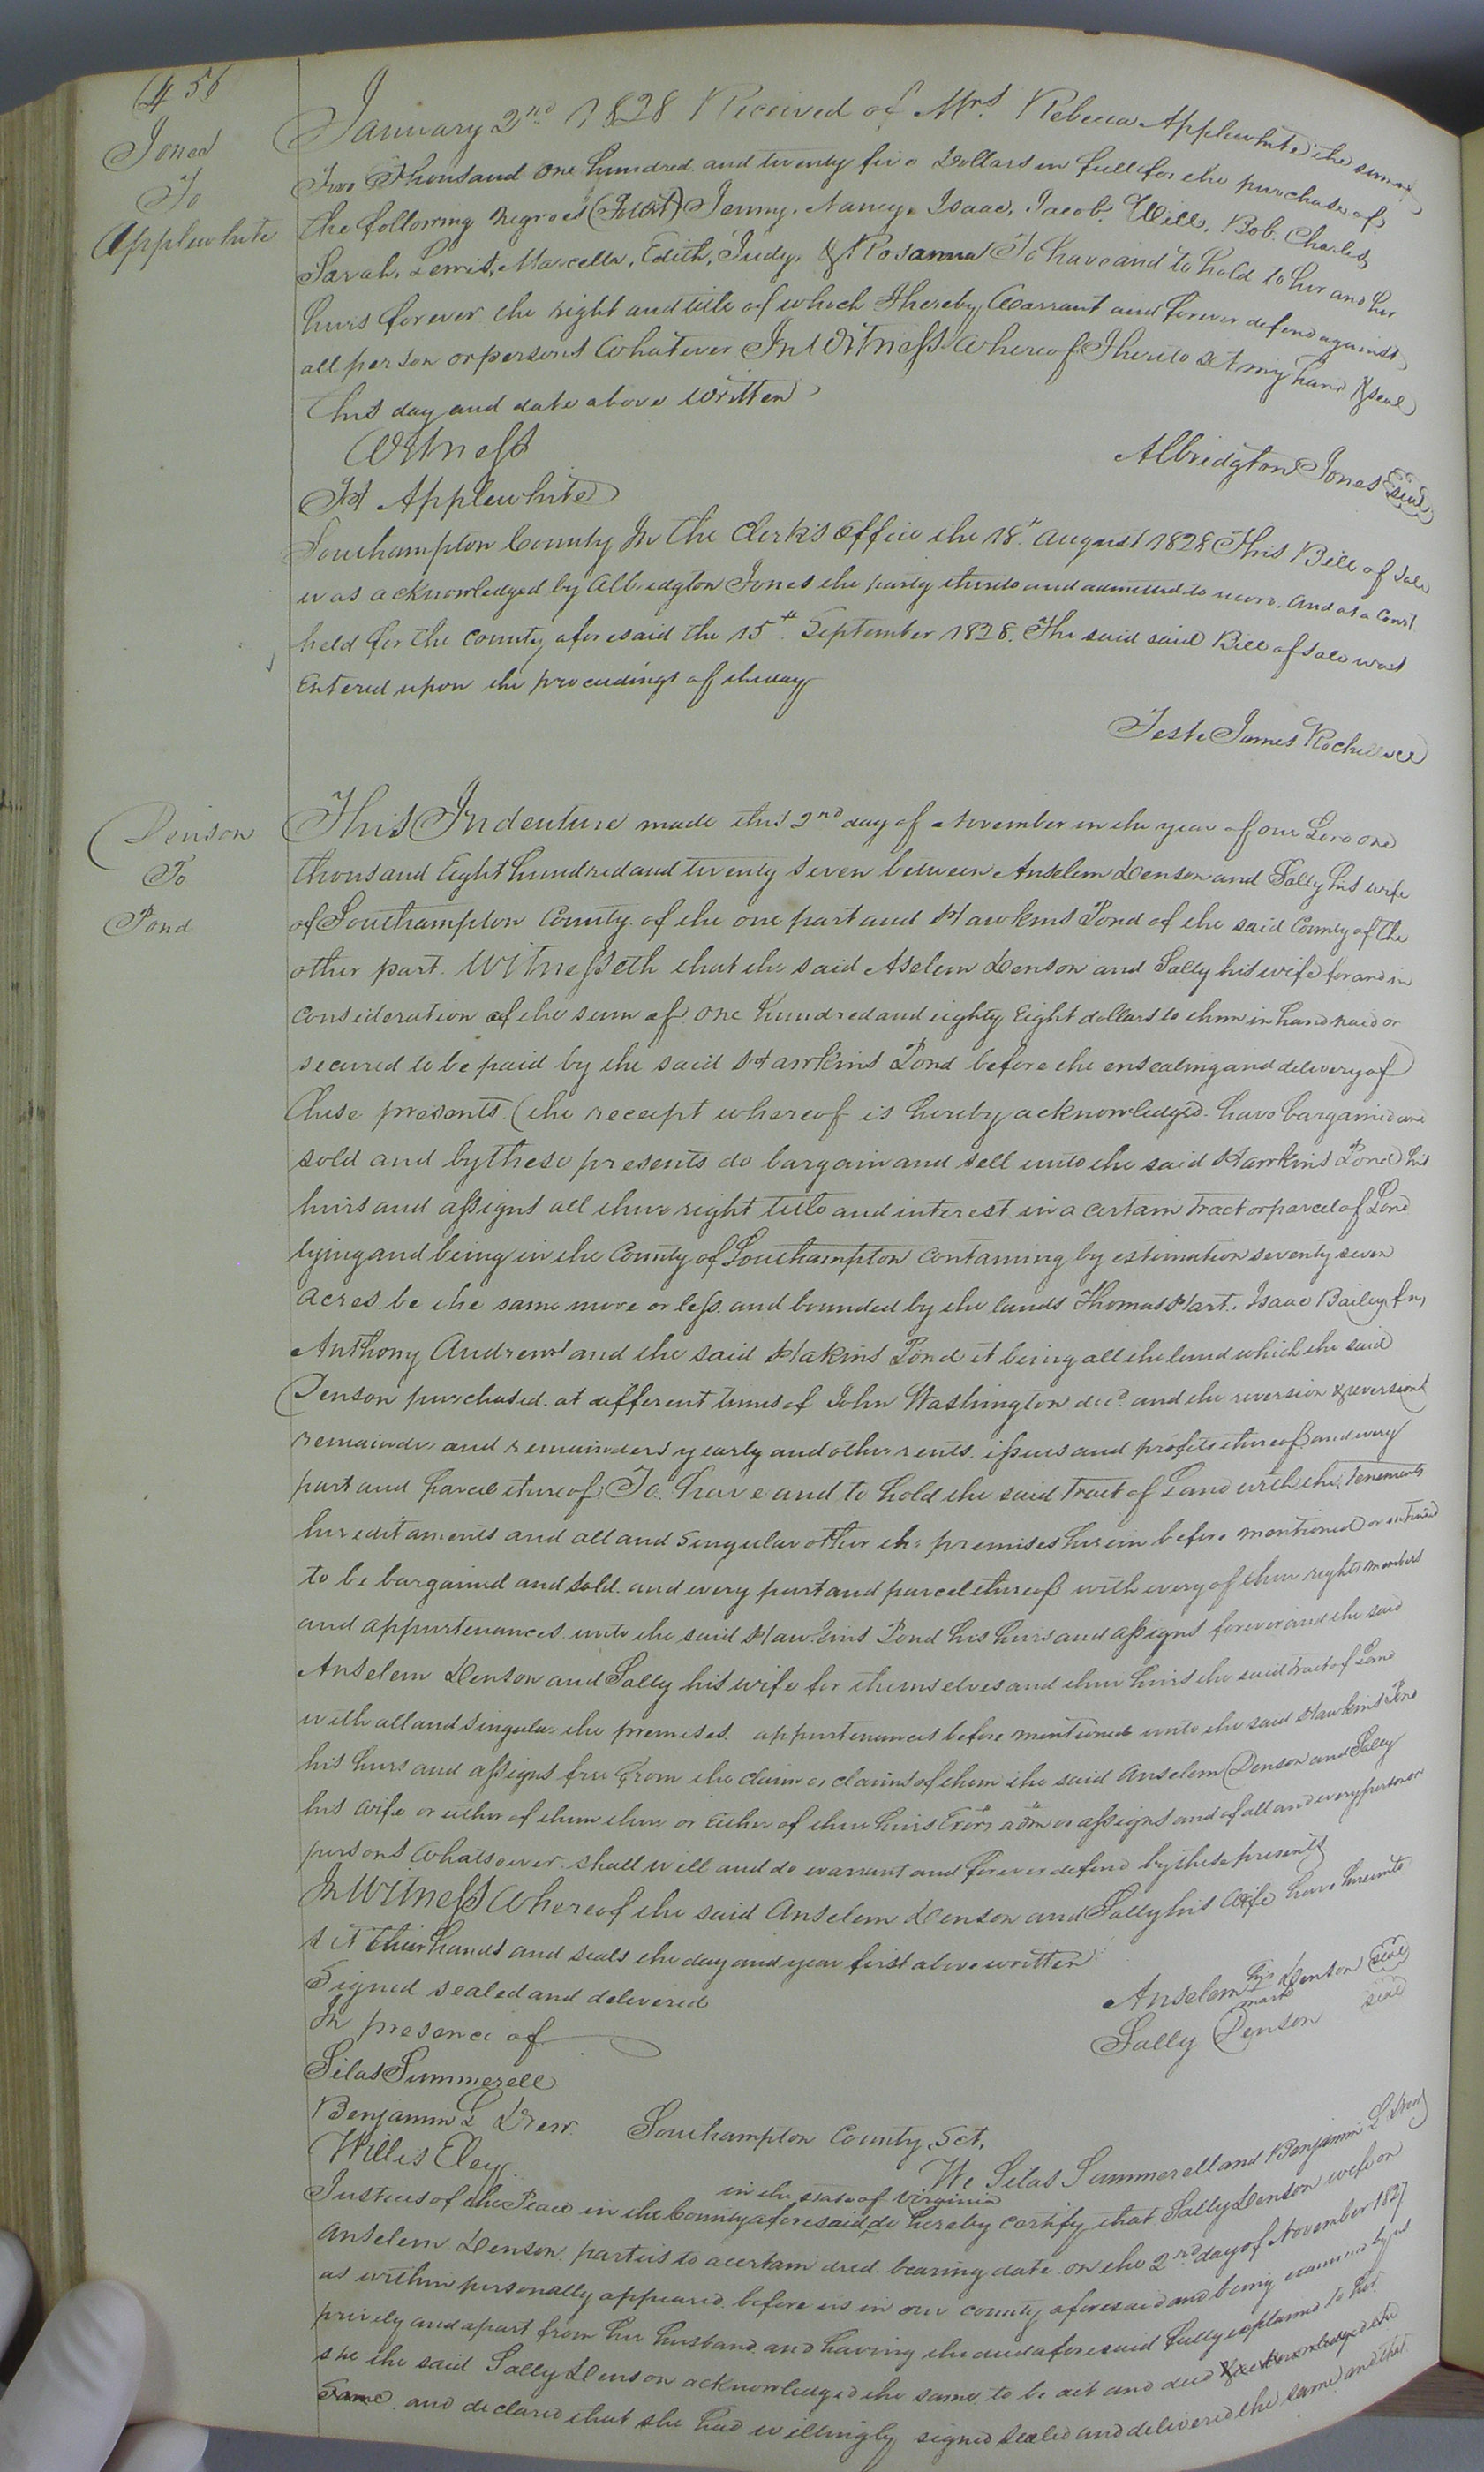 456
Jones
To
Applewhite
January 2nd 1828 Received of Mrs Rebecca Applewhite the sum of
Two Thousand one hundred and twenty five Dollars in full for the purchase of
the following negroes (Towit) Jenny. Nancy. Isaac, Jacob. Will. Bob. Charles
Sarah, Lewis, Marcella, Edith, Judy, & Rosanna To have and to hold to her and her
heirs forever the right and title of which I hereby Warrant and forever defend against
all person or persons Whatever In Witness Whereof I hereto set my hand & seal
this day and date above written
Witness
Albridgton Jones seal
H Applewhite
Southampton County In the Clerk's office the 18th August 1828 This Bill of sale
was acknowledged by Albridgton Jones the party thereto and admitted to record. And at a Court
held for the County aforesaid the 15th September 1828. The said said Bill of sale was
Entered upon the proceedings of the day
Teste James Rochelle
Denson
To
Pond
This Indenture made this 2nd day of November in the year of our Lord one
thousand Eight hundred and twenty seven between Anselem Denson and Sally his wife
of Southampton County of the one part and Hawkins Pond of the said County of the
other part. Witnesseth that the said Aselem Denson and Sally his wife for and in
consideration of the sum of one hundred and eighty Eight dollars to them in hand paid or
secured to be paid by the said Hawkins Pond before the ensealing and delivery of
these presents (the receipt whereof is hereby acknowledged. have bargained and
sold and by these presents do bargain and sell unto the said Hawkins Pond his
heirs and assigns all their right title and interest in a certain tract or parcel of Land
lying and being in the County of Southampton containing by estimation seventy seven
acres be the same more or less. and bounded by the lands Thomas Hart. Isaac Bailey
Anthony Andrews and the said Hakins Pond it being all the land which the said
Denson purchased at different times of John Washington decd and the reversion & reversions
remainder and remainders yearly and other rents. issues and profits thereof and every
part and parcel thereof To have and to hold the said tract of Land with the tenements
hereditaments and all and singular other the premises herein before mentioned or intended
to be bargained and sold. and every part and parcel thereof with every of their rights members
and appurtenances unto the said Hawkins Pond his heirs and assigns forever and the said
Anselem Denson and Sally his wife for themselves and their heirs the said tract of Land
with all and singular the premises. appurtenances before mentioned unto the said Hawkins Pond
his heirs and assigns free from the claim or claims of them the said Anselem Denson and Sally
his wife or either of them their or Either of their heirs Exors adm or assigns and of all and every person or
persons Whatsoever shall will and do warrant and forever defend by these presents
In Witness Whereof the said Anselem Denson and Sally his wife have hereunto
set their hands and seals the day and year first above written
Signed sealed and delivered
Anselem his mark Denson seal
In presence of
Sally Denson seal
Silas Summerell
Benjamin L Drew.
Southampton County, Sct.
Willis Eley
We Silas Summerell and Benjamin L Drew
in the state of Virginia
Justices of the Peace in the County aforesaid, do hereby certify that Sally Denson wife on
Anselem Denson parties to a certain deed bearing date on the 2nd day of November 1827
as within personally appeared before us in our county aforesaid and being examined by us
privily and apart from her husband and having the deed aforesaid fully explained to her
she the said Sally Denson acknowledged the same to be act and deed & acknowledged the
same and declared that she had willingly signed sealed and delivered the same and that